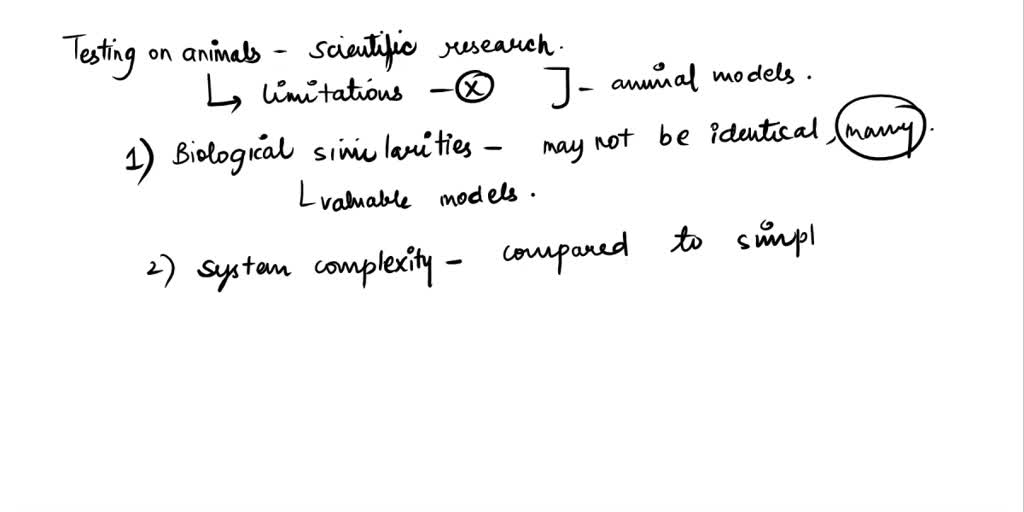 Testing on animals - scientific research.
↳ limitations - ⓧ ] - animal models.
1) Biological similarities - may not be identical, many.
└ valuable models.
2) system complexity - compared to simpl